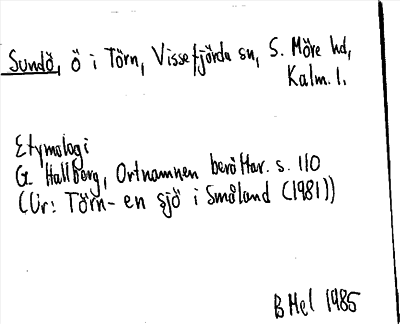 Sundö, ö i Törn, Vissefjärda sn, S. Möre hd,
Kalm. l.
Etymologi
G. Hallberg, Ortnamnen berättar. s. 110
(Ur: Törn - en sjö i Småland (1981))
B Mel 1985